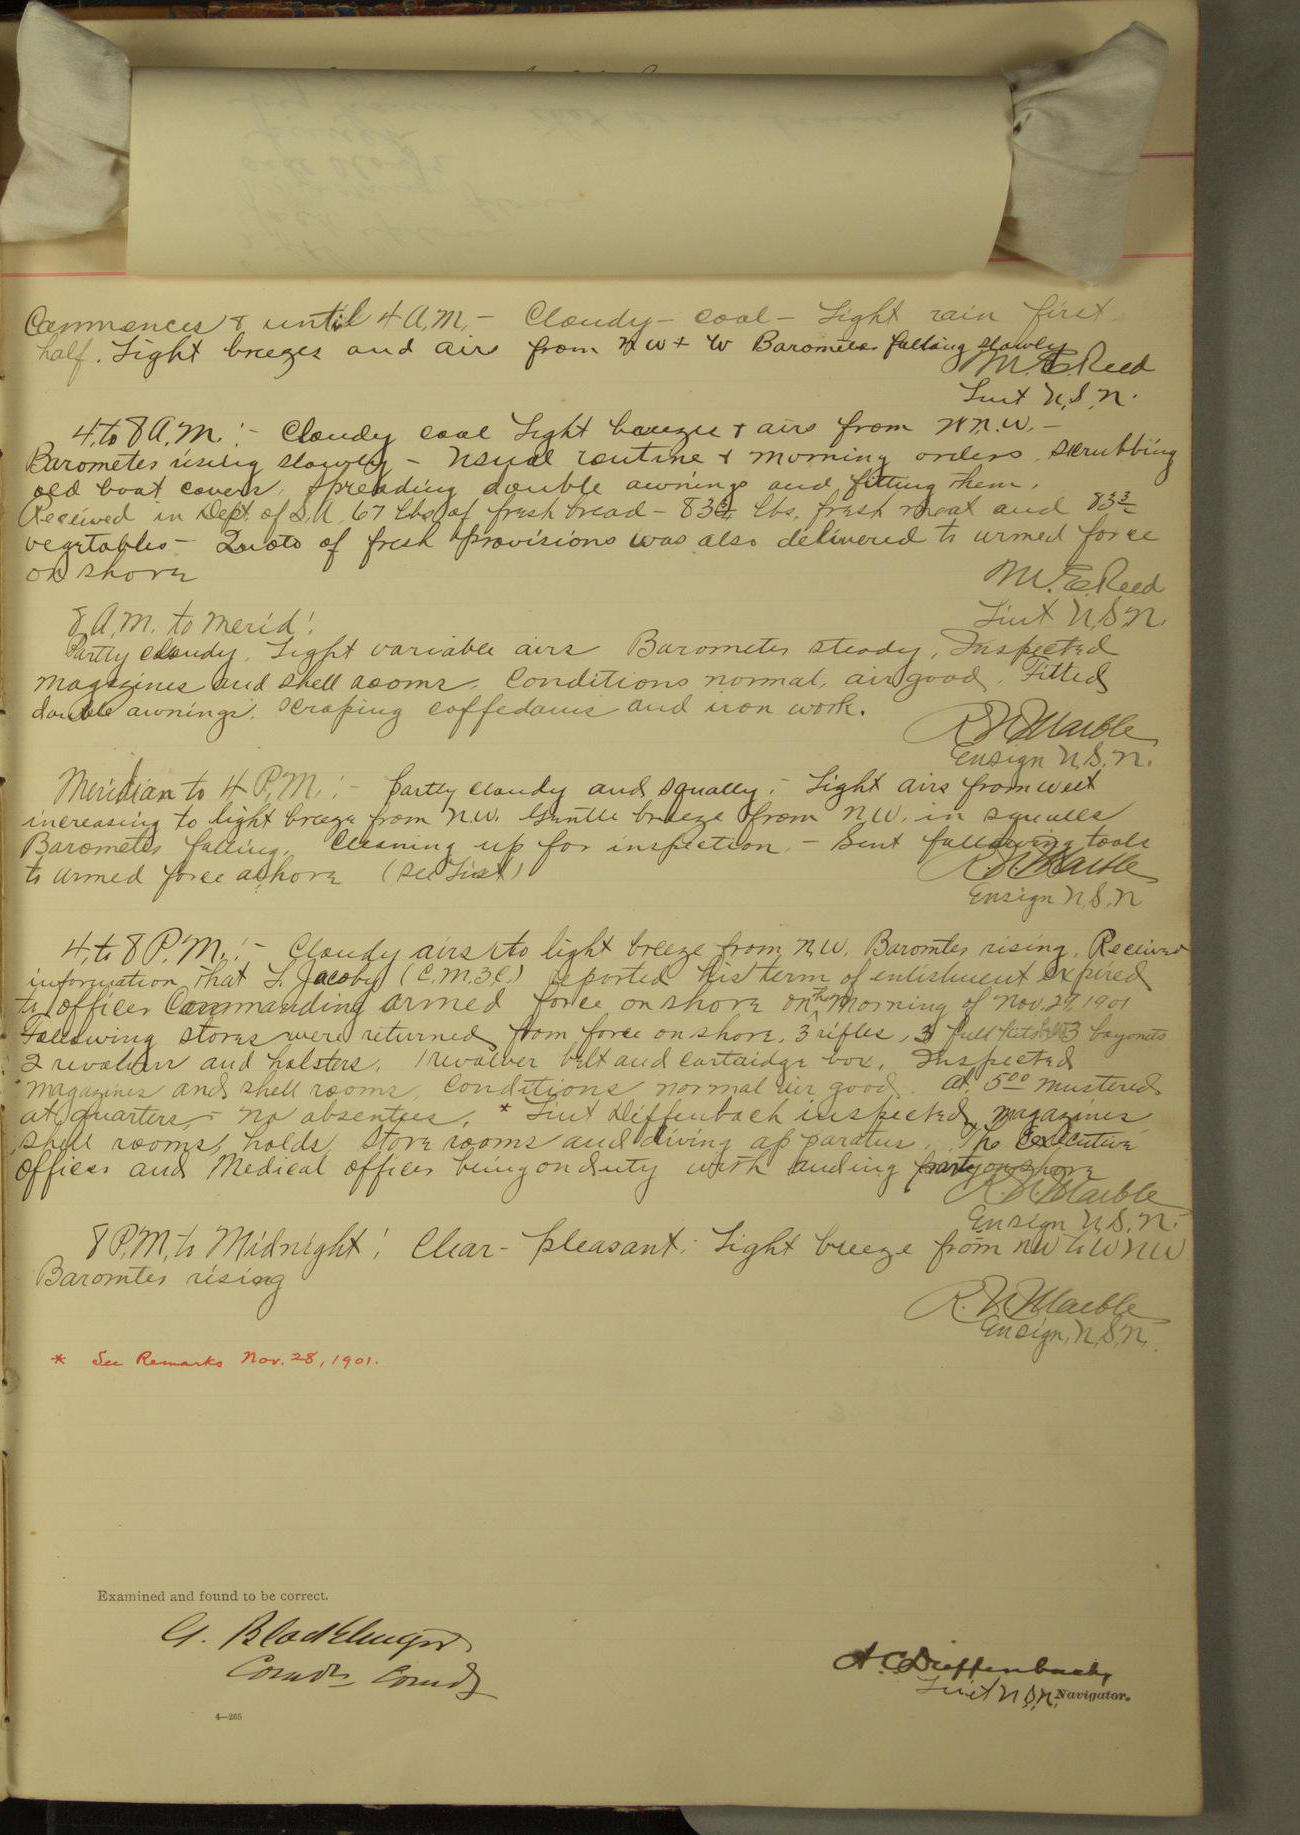 Commences & until 4 A.M. - Cloudy - cool - Light rain first
half. Light breezes and airs from NW + W Barometer falling slowly
M. E. Reed
Lieut U.S.N.
4 to 8 A.M. :- Cloudy cool Light breezes & airs from W.N.W. -
Barometer rising slowly - Usual routine & morning orders. Scrubbing
old boat covers, spreading double awnings and fitting them.
Received in Dept. of S.A. 67 Lbs of fresh bread - 83 Lbs. fresh meat and 83
vegetables - Quota of fresh provisions was also delivered to armed force
on shore
M. E. Reed
Lieut U.S.N.
8 A.M. to Merid:
Partly cloudy. Light variable airs Barometer steady, Inspected
magazines and shell rooms. Conditions normal, air good. Fitted
double awnings. Scraping cofferdams and iron work.
R. N. Marble
Ensign U.S.N.
Meridian to 4 P.M. :- Partly cloudy and squally. - Light airs from west
increasing to light breeze from N.W. Gentle breeze from N.W. in squalls
Barometer falling. Cleaning up for inspection. - Sent following tools
to armed force ashore (See List)
R. N. Marble
Ensign U.S.N
4 to 8 P.M. :- Cloudy airs to light breeze from N.W. Baromter rising. Received
information that L. Jacoby (C.M.3C.) reported his term of enlistment expired
to officer Commanding armed force on shore on the Morning of Nov. 27, 1901
Following stores were returned from force on shore, 3 rifles, 3 full belts 3 bayonets
2 revolvers and holsters, 1 revolver belt and cartaidge box, Inspected
magazines and shell rooms, Conditions normal air good. At 5 00 mustered
at quarters, - no absentees. * Lieut Dieffenbach inspected magazines
shell rooms, holds, store rooms and diving apparatus. The Executive
Officer and Medical officer being on duty with landing party on shore
R. N. Marble
Ensign U.S.N.
8 P.M. to Midnight: Clear - pleasant. Light breeze from NW to WNW
Baromter rising
R. N. Marble
Ensign, U.S.N.
* See Remarks Nov. 28, 1901.
Examined and found to be correct.
G. Blocklinger
Comdr Comdg
A C Dieffenbach,
Lieut U.S.N. Navigator.
4—265